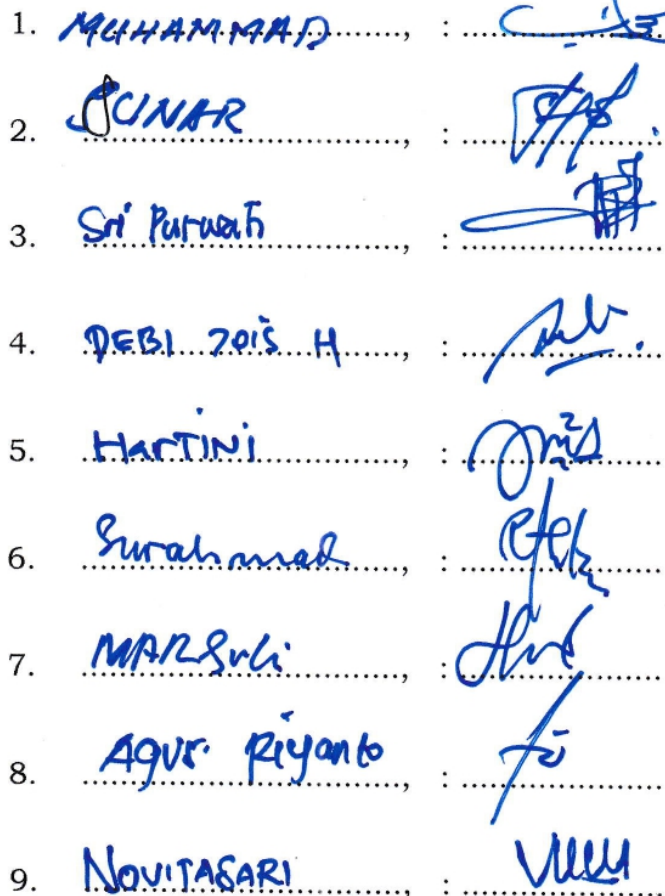 1. MUHAMMAD ..........., : ...........
2. SUNAR ..........., : ...........
3. Sri Purwati ..........., : ...........
4. DEBI ZOIS H ..........., : ...........
5. HARTINI ..........., : ...........
6. Surahmad ..........., : ...........
7. MARSULi ..........., : ...........
8. AGUS Riyanto ..........., : ...........
9. NOVITASARI ..........., : ...........